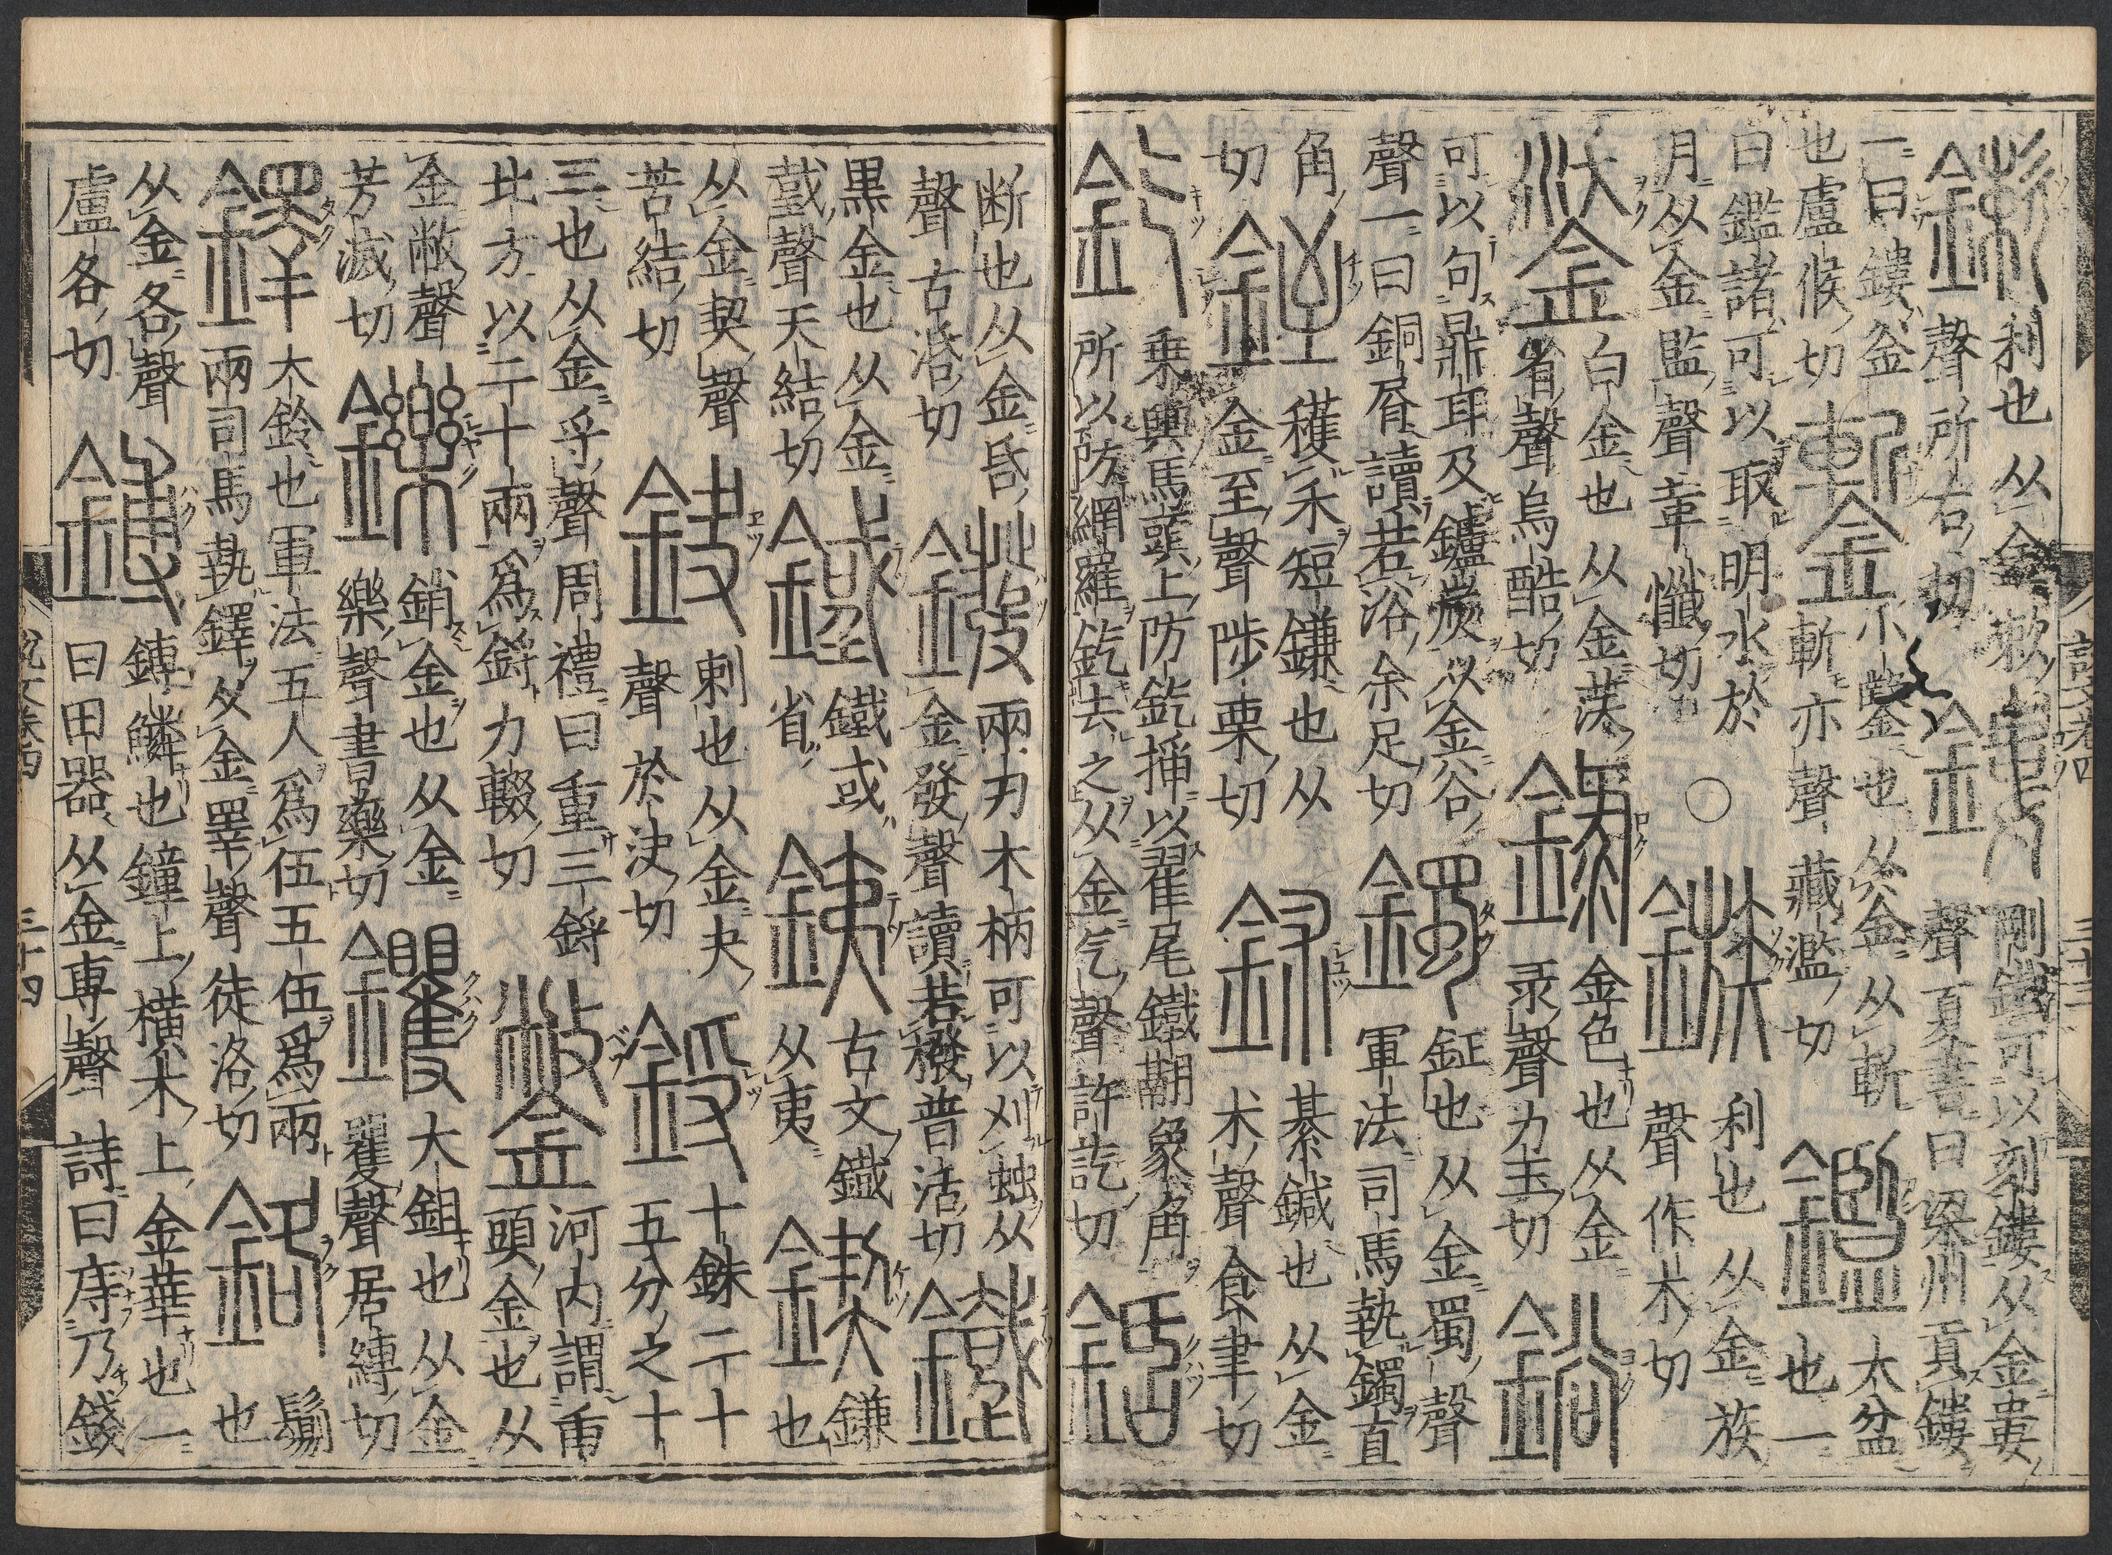 鏉 利也从金欶
聲所右切
鏤 剛鐵可以刻鏤从金婁
聲夏書曰梁州貢鏤
一曰鏤釜
也盧候切
鏨 小鏨也从金从斬
斬亦聲藏濫切
鑑 大盆
也一
曰鑑諸可以取明水於
月从金監聲革懺切
○
鏃 利也从金族
聲作木切
鋈 白金也从金芺
省聲烏酷切
錄 金色也从金
彔聲力玉切
鋊
可以句鼎耳及鑪炭从金谷
聲一曰銅屑讀若浴余足切
鐲 鉦也从金蜀聲
軍法司馬執鐲直
角
切
銍 穫禾短鎌也从
金至聲陟栗切
鉥 綦鍼也从金
朮聲食聿切
釳 乗輿馬頭上防釳插以翟尾鐵翮象角
所以防網羅釳去之从金气聲許訖切
銛
断也从金昏
聲古活切
鏺 兩刃木柄可以刈艸从
金發聲讀若撥普活切
鐵
黒金也从金
𢧜聲天結切
鐵或
省
銕 古文鐵
从夷
鍥 鎌
也
从金契聲
苦結切
鈌 刺也从金夬
聲於決切
鋝 十銖二十
五分之十
三也从金寽聲周禮曰重三鋝
北方以二十兩爲鋝力輟切
鐅 河内謂臿
頭金也从
金敝聲
芳滅切
鑠 銷金也从金
樂聲書藥切
钁 大鉏也从金
矍聲居縛切
鐸 大鈴也軍法五人爲伍五伍爲兩
兩司馬執鐸从金睪聲徒洛切
鉻 鬄
也
从金各聲
盧各切
鎛 鎛鱗也鐘上横木上金華也一
曰田器从金尃聲詩曰庤乃錢
説文卷四
三十四